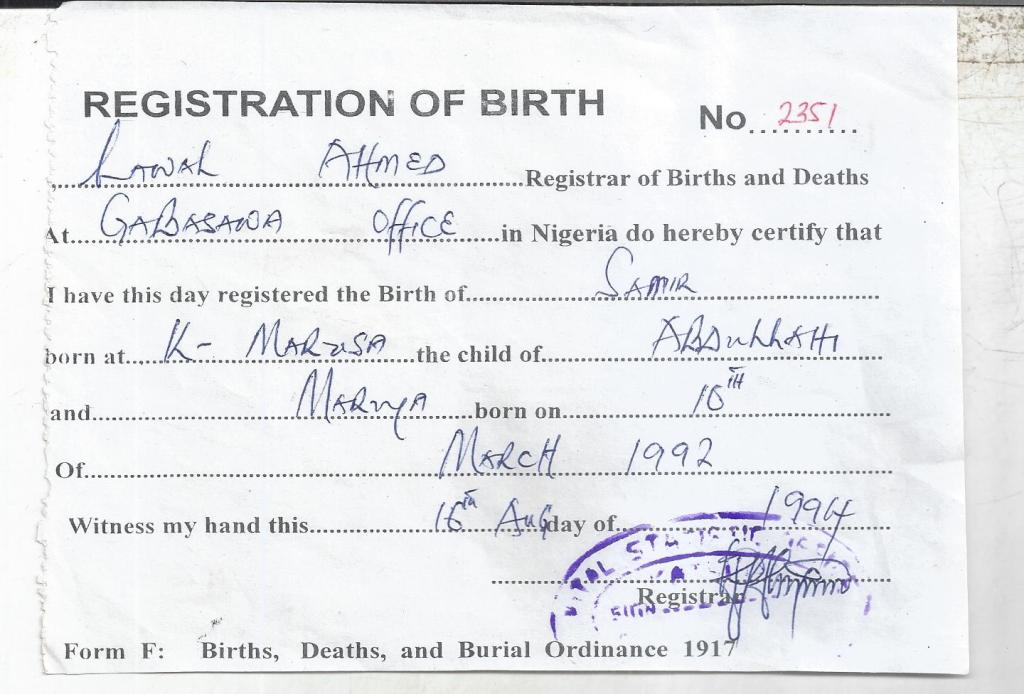 REGISTRATION OF BIRTH
No. 2351
LAWAL AHMED Registrar of Births and Deaths
At GABASAWA OFFICE in Nigeria do hereby certify that
I have this day registered the Birth of SAMIR
born at K- MARUSA the child of ABDULLAHI
and MARIYA born on 10TH
Of MARCH 1992
Witness my hand this 16th Aug day of 1994
VITAL STATISTIC
SIGN
Registrar
Form F: Births, Deaths, and Burial Ordinance 1917